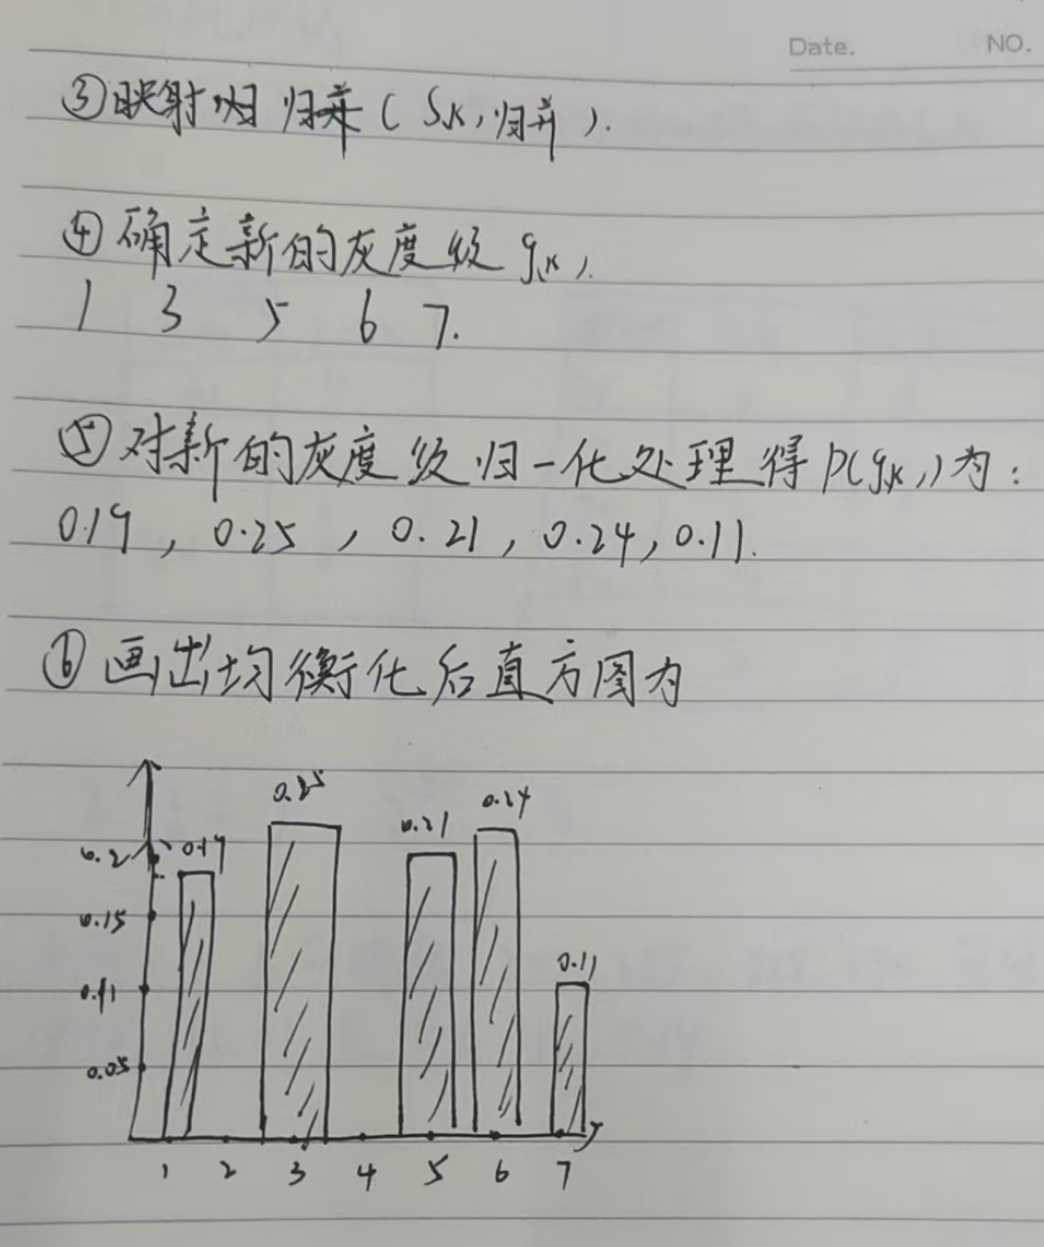 Date.
NO.
③映射归 归并(Sk,归并).
④确定新的灰度级 g(k).
1 3 5 6 7.
⑤对新的灰度级归一化处理得P(gk)为:
0.19, 0.25, 0.21, 0.24, 0.11.
⑥画出均衡化后直方图为
0.25
0.24
0.21
0.2
0.19
0.15
0.11
0.05
1 2 3 4 5 6 7